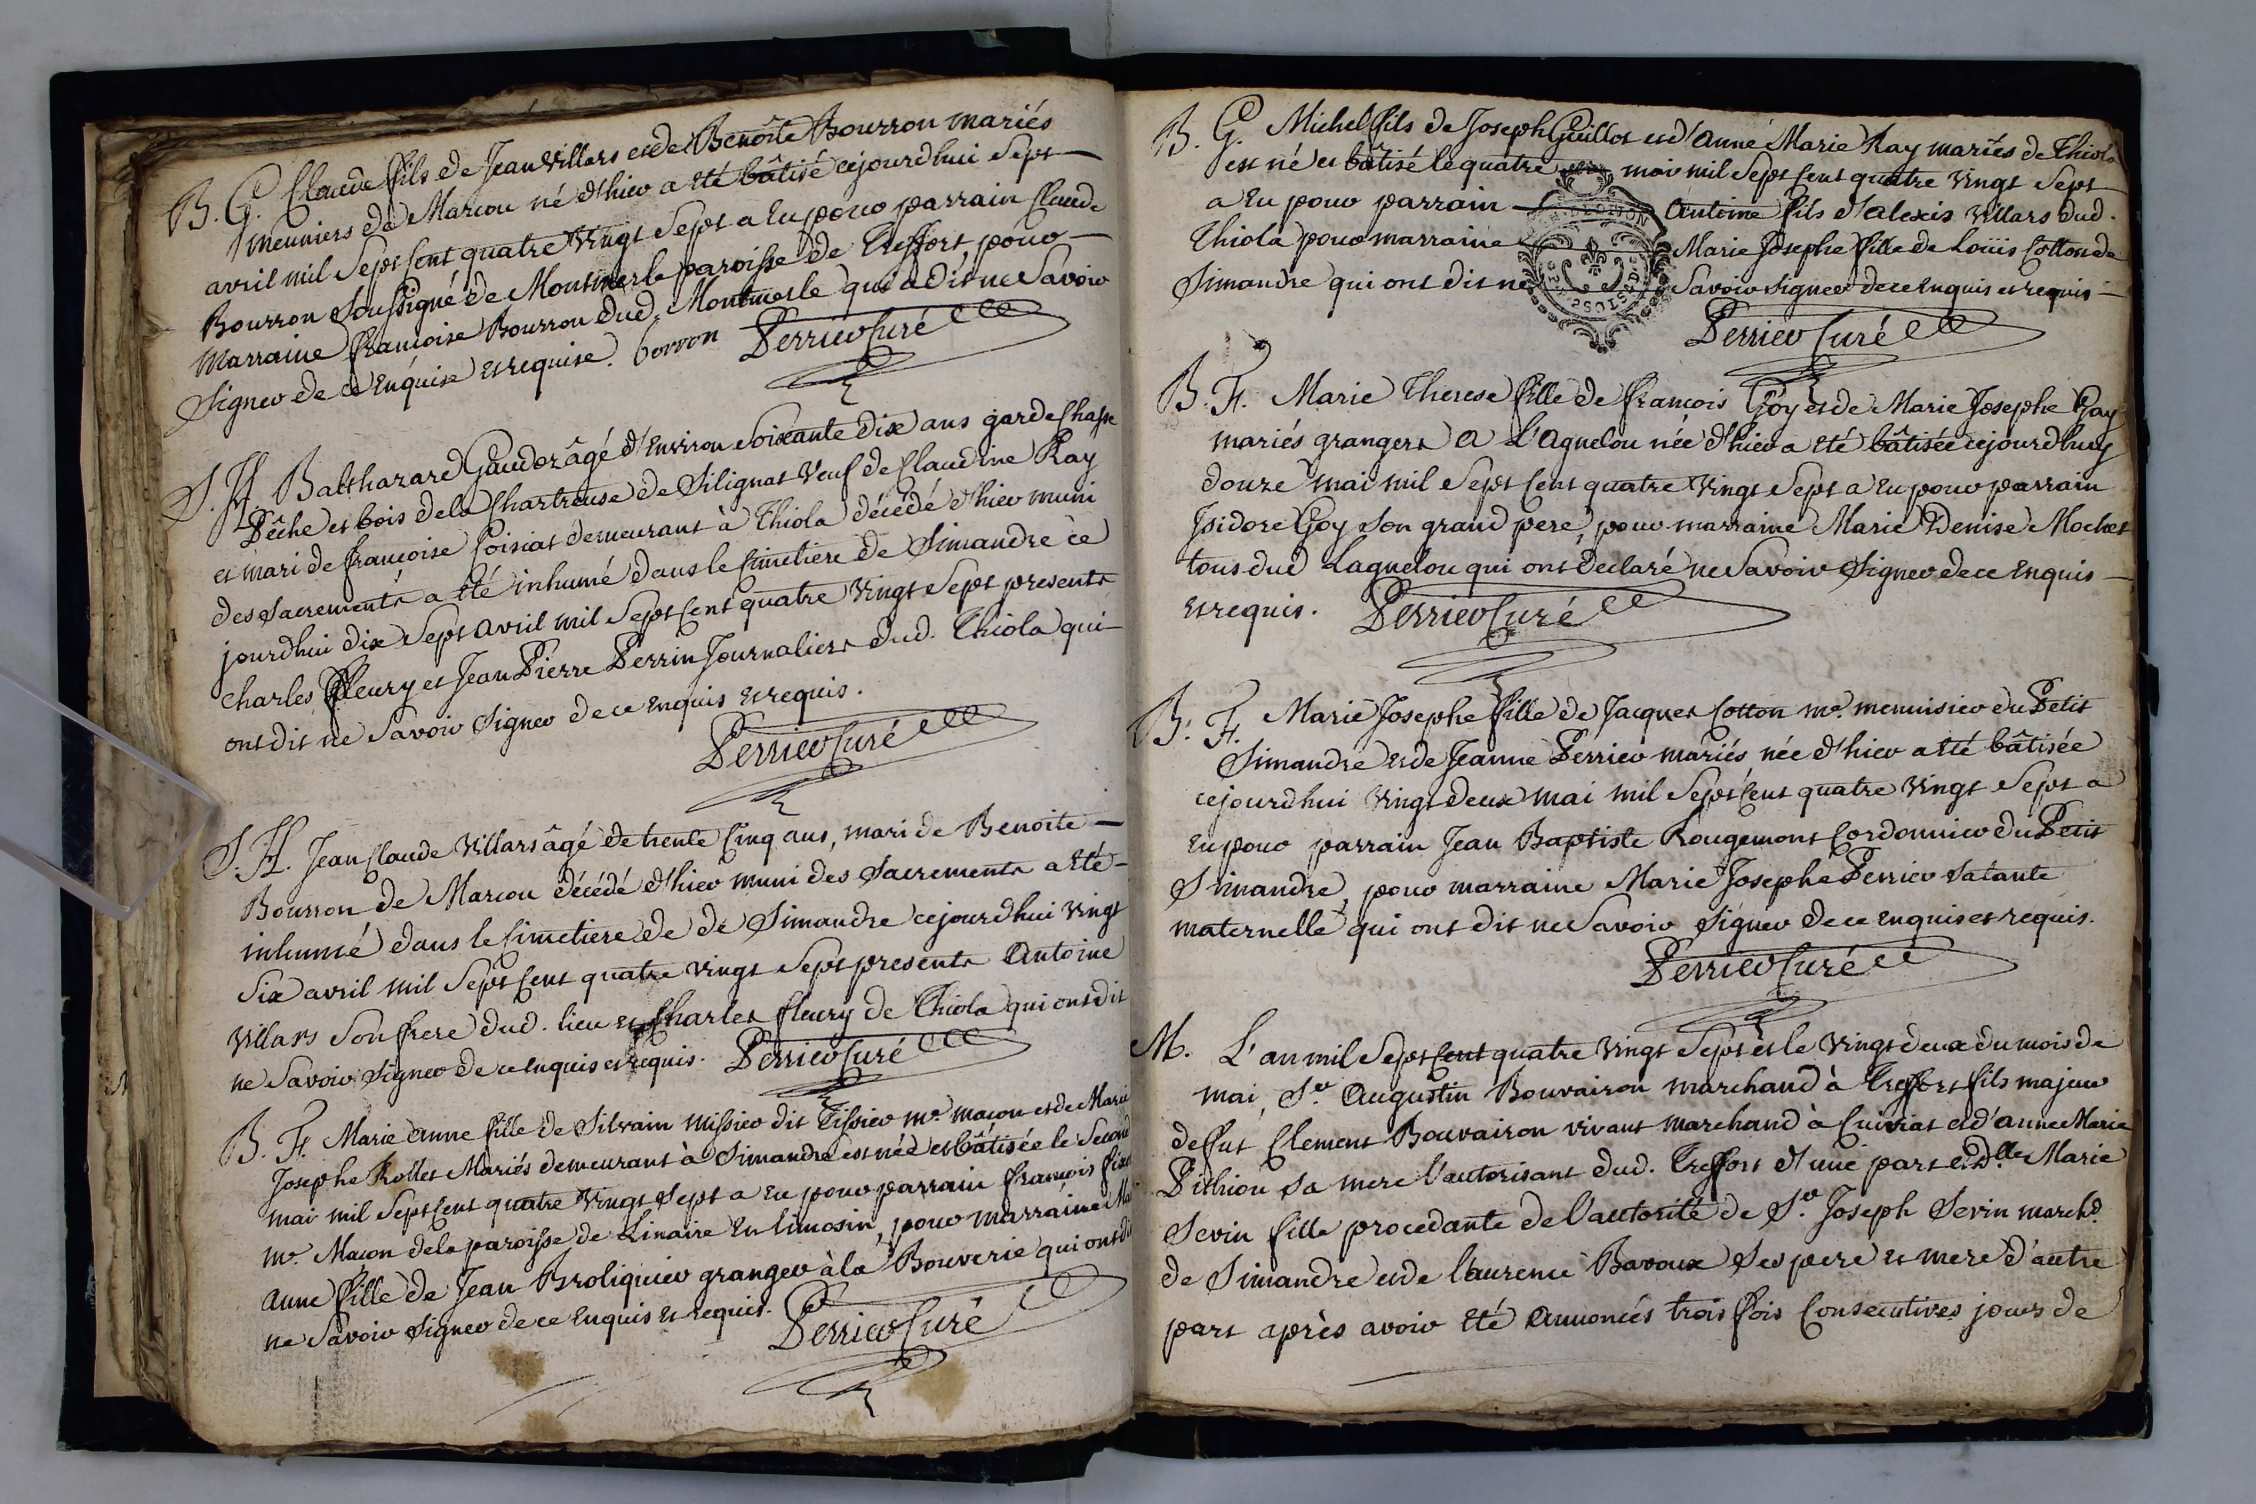 B. G. Claude fils de Jean Villars et de Benoîte Bourron mariés
meuniers de Marcou né d'hier a été bâtisé cejourdhui sept
avril mil sept cent quatre vingt sept a eu pour parrain Claude
Bourron soussigné de Montmerle paroisse de Treffort pour
marraine françoise Bourron dud. Montmerle qui a dit ne savoir
signer de ce enquise et requise. borron Perrier Curé
S. H. Balthazard Gaudez âgé d'environ soixante dix ans garde chasse
Pêche et bois de la Chartreuse de Silignat veuf de Claudine Ray
et mari de françoise Coisiat demeurant à Thiola décédé d'hier muni
des sacrements a été inhumé dans le cimetiere de Simandre ce
jourdhui dix sept avril mil sept cent quatre vingt sept presents
charles fleury et Jean Pierre Perrin Journaliers dud. Thiola qui
ont dit ne savoir signer de ce enquis et requis.
Perrier Curé
S. H. Jean Claude Villars âgé de trente cinq ans, mari de Benoite
Bourron de Marcou décédé d'hier muni des sacrements a été
inhumé dans le cimetiere de de Simandre cejourdhui vingt
six avril mil sept cent quatre vingt sept presents Antoine
Villars son frere dud. lieu et Charles fleury de Thiola qui ont dit
ne savoir signer de ce enquis et requis. Perrier Curé
B. F. Marie anne fille de Silvain missier dit Tissier me. maçon et de Marie
Josephe Rollet Mariés demeurant à Simandre est née et bâtisée le second
mai mil sept cent quatre vingt sept a eu pour parrain françois
me. Maçon de la paroisse de Linaire en limosin, pour marraine
anne fille de Jean Broliquier granger à la Bouverie qui ont dit
ne savoir signer de ce enquis et requis. Perrier Curé
B. G. Michel fils de Joseph Guillot et d'anne Marie Ray mariés de Thiola
est né et bâtisé le quatre mai mil sept cent quatre vingt sept
a eu pour parrain antoine fils d'alexis Villars dud.
Thiola pour marraine Marie Josephe fille de Louïs Cotton de
Simandre qui ont dit ne savoir signer de ce enquis et requis
Perrier Curé
B. F. Marie Therese fille de françois Goy et de Marie Josephe Gay
mariés grangers a L'Agnelou née d'hier a été bâtisée cejourdhuy
douze mai mil sept cent quatre vingt sept a eu pour parrain
Isidore Goy son grand pere, pour marraine Marie Denise Mochet
tous dud Lagnelou qui ont declaré ne savoir signer de ce enquis
et requis. Perrier Curé
B. F. Marie Josephe fille de Jacques Cotton me. menuisier du Petit
Simandre et de Jeanne Perrier mariés née d'hier a été bâtisée
cejourdhui vingt deux mai mil sept cent quatre vingt sept a
eu pour parrain Jean Baptiste Rougemont Cordonnier du Petit
Simandre, pour marraine Marie Josephe Perrier sa tante
maternelle qui ont dit ne savoir signer de ce enquis et requis.
Perrier Curé
M. L'an mil sept cent quatre vingt sept et le vingt deux du mois de
mai, Sr. Augustin Bouvairon marchand à Treffort fils majeur
de fut Clement Bouvairon vivant marchand à Cuiriat et d'anne Marie
Pithiou sa mere l'autorisant dud. Treffort d'une part et Dlle. Marie
Sevin fille procedante de l'autorité de Sr. Joseph Sevin marchd.
de Simandre et de laurence Bavoux ses pere et mere d'autre
part après avoir été annoncés trois fois consecutives jours de